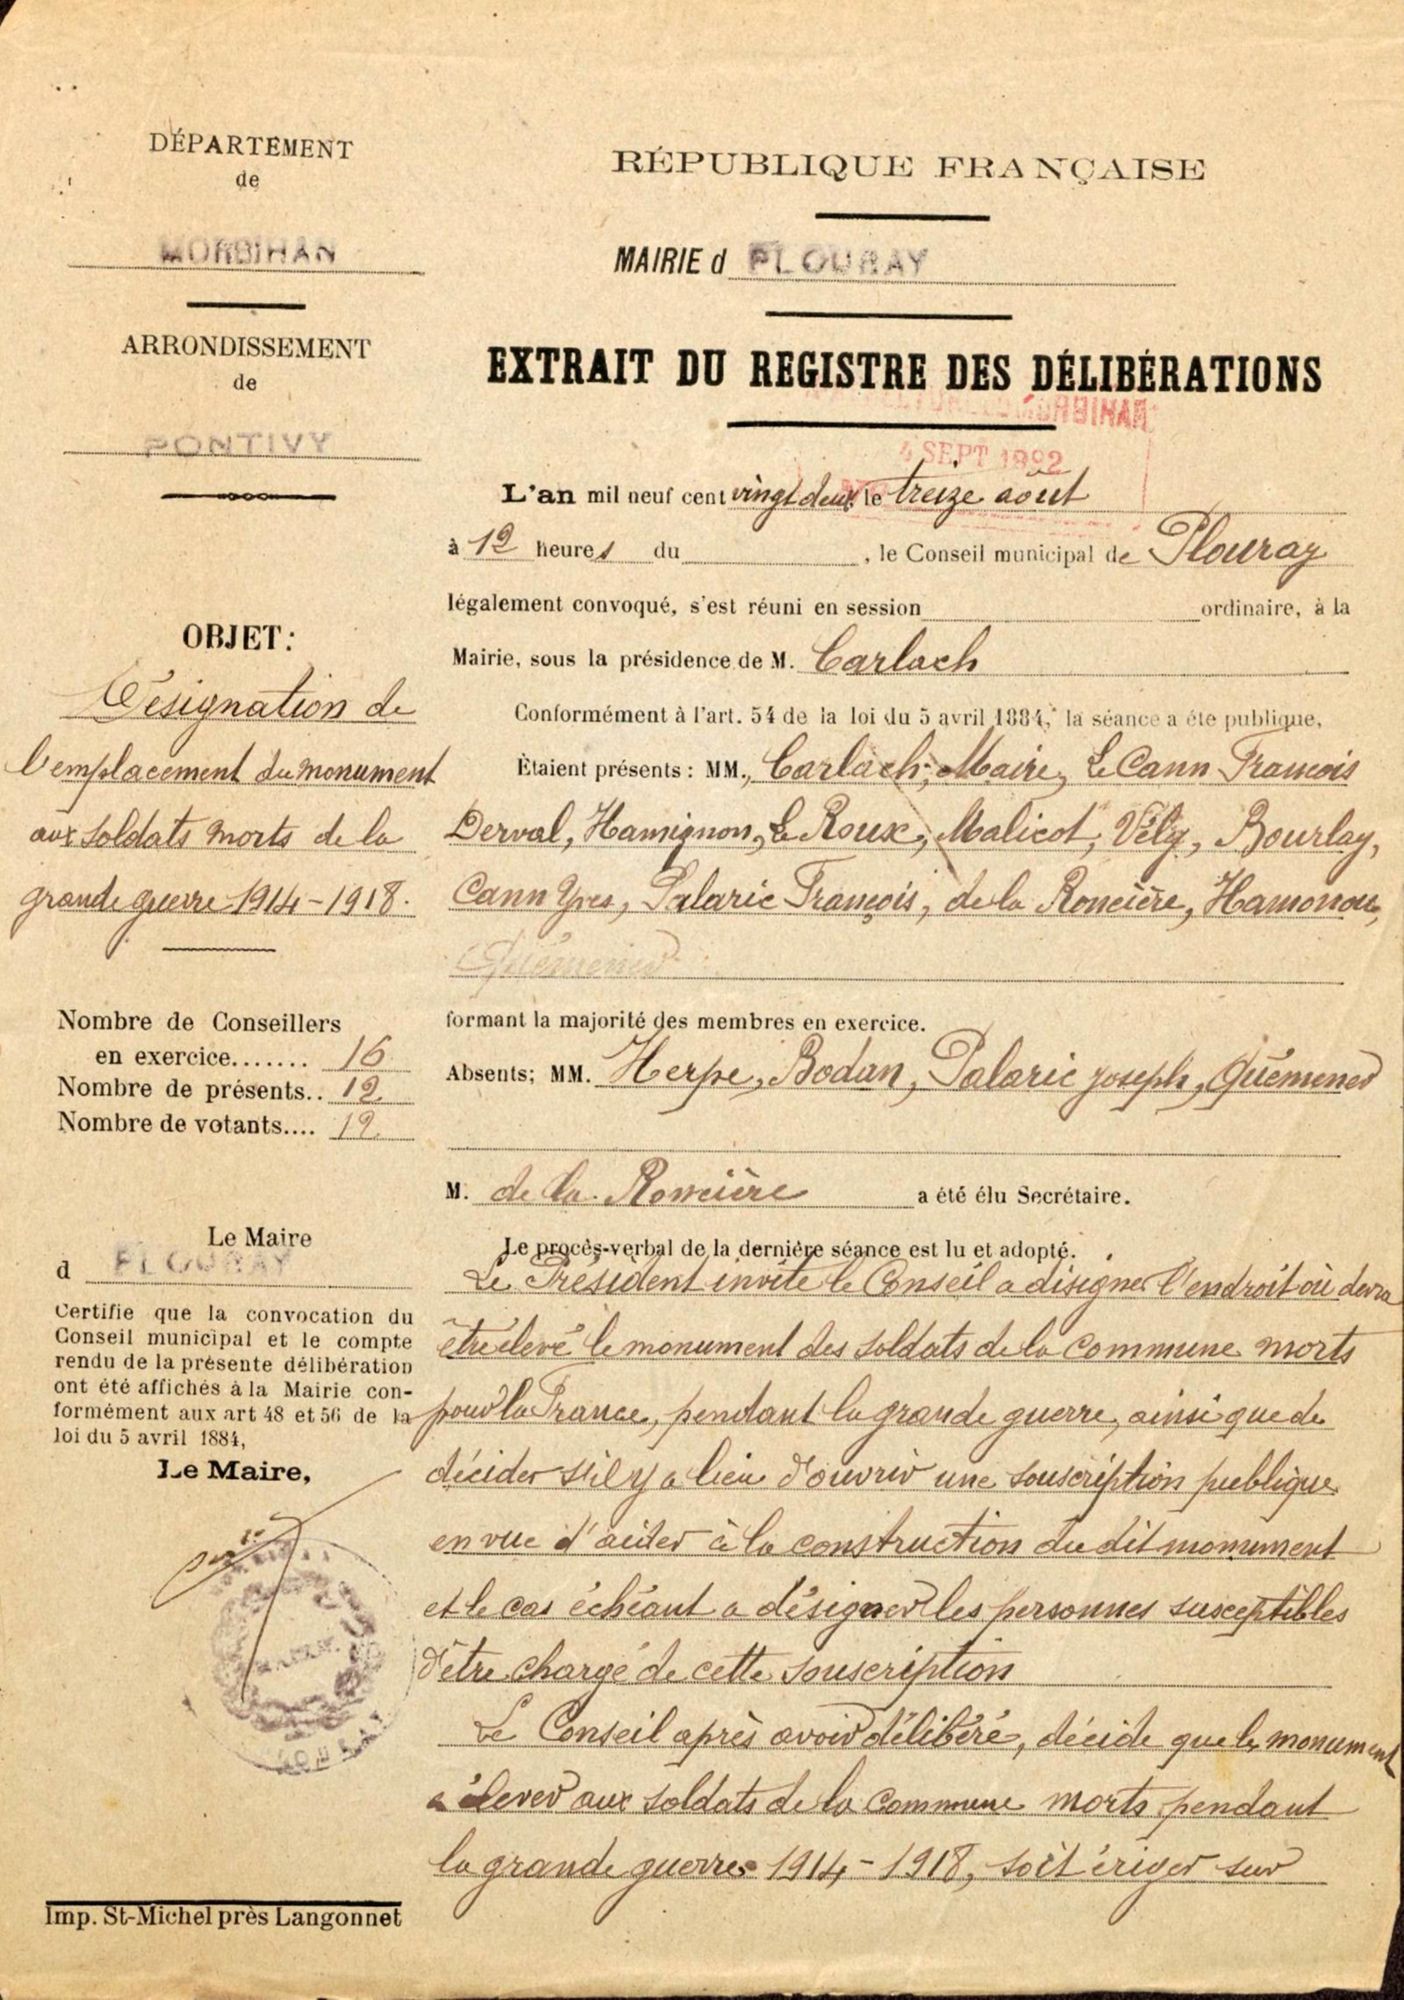 DÉPARTEMENT
de
MORBIHAN
ARRONDISSEMENT
de
PONTIVY
OBJET:
Désignation de
l'emplacement du monument
aux soldats morts de la
grande guerre 1914-1918.
Nombre de Conseillers
en exercice....... 16
Nombre de présents.. 12
Nombre de votants.... 12
Le Maire
d PLOURAY
Certifie que la convocation du
Conseil municipal et le compte
rendu de la présente délibération
ont été affichés à la Mairie con-
formément aux art 48 et 56 de la
loi du 5 avril 1884,
Le Maire,
Imp. St-Michel près Langonnet
RÉPUBLIQUE FRANÇAISE
MAIRIE d PLOURAY
EXTRAIT DU REGISTRE DES DÉLIBÉRATIONS
MORBIHAN
4 SEPT 1922
L'an mil neuf cent vingt deux le treize août
à 12 heures du , le Conseil municipal de Plouray
légalement convoqué, s'est réuni en session ordinaire, à la
Mairie, sous la présidence de M. Carlach
Conformément à l'art. 54 de la loi du 5 avril 1884, la séance a éte publique,
Étaient présents : MM., Carlach, Maire, Le Cann François
Derval, Hamignon, Le Roux, Malicot, Vély, Bourlay,
Cann Yves, Palaric François, de la Roncière, Hamonou,
Quémener
formant la majorité des membres en exercice.
Absents; MM. Herpe, Bodan, Palaric joseph, Quémener
M. de la Roncière a été élu Secrétaire.
Le procès-verbal de la dernière séance est lu et adopté.
Le Président invite le Conseil a disigner l'endroit où devra
être élevé le monument des soldats de la commune morts
pour la France, pendant la grande guerre, ainsi que de
décider s'il y a lieu d'ouvrir une souscription publique
en vue d'aider à la construction du dit monument
et le cas échéant a désigner les personnes susceptibles
d'être chargé de cette souscription
Le Conseil après avoir délibéré, décide que le monument
a élever aux soldats de la commune morts pendant
la grande guerre 1914-1918, soit ériger sur